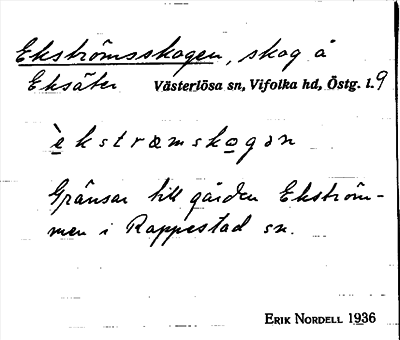 Ekströmsskogen, skog å
Eksäter Västerlösa sn, Vifolka hd, Östg. l. 9
èkstrœmskogən
Gränsar till gården Ekström-
men i Rappestad sn.
ERIK NORDELL 1936